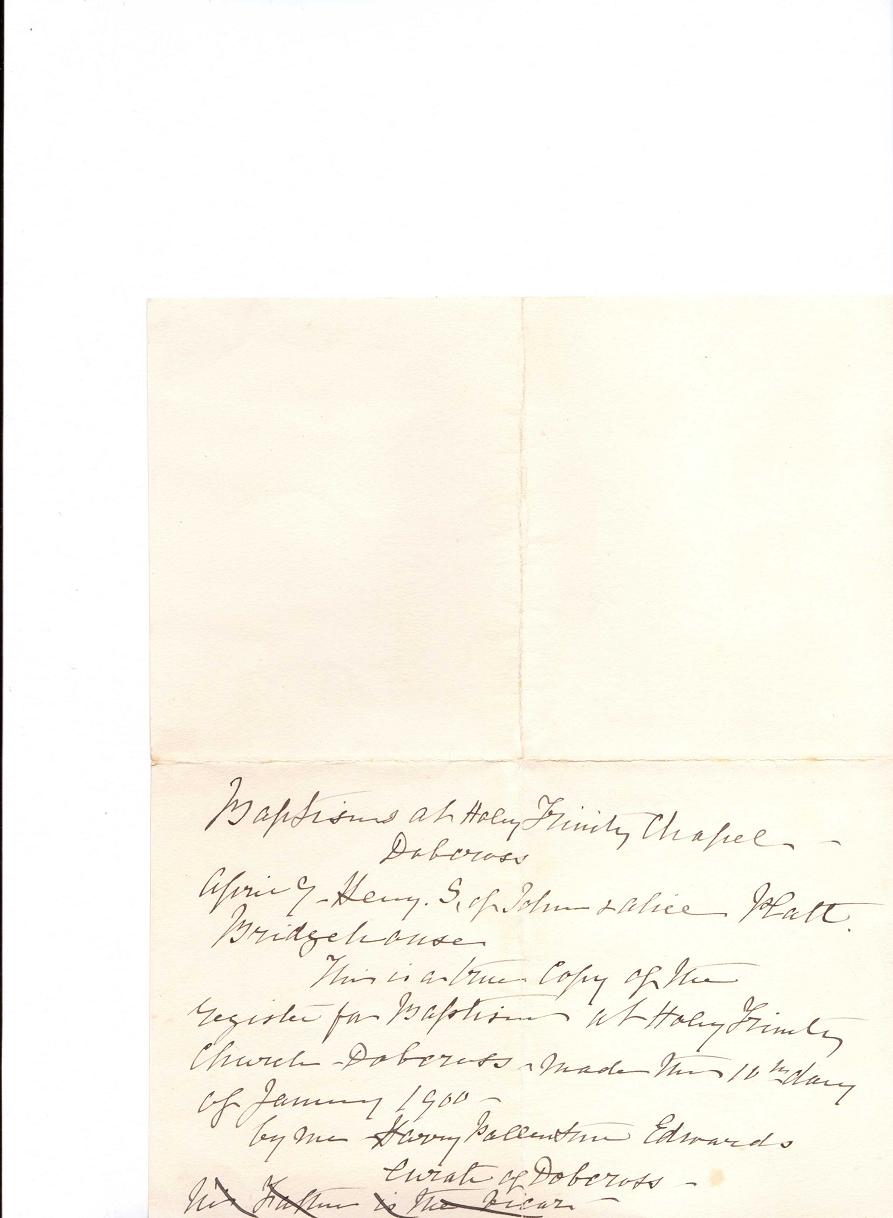 Baptisms at Holy Trinity Chapel -
Dobcross
April 7 - Henry. S. of John & Alice Platt.
Bridgehouse
This is a true Copy of the
register for Baptisms at Holy Trinity
Church - Dobcross - made this 10th day
of January 1900 -
by me Harry Edwards
Curate of Dobcross -
His Father is the Vicar -